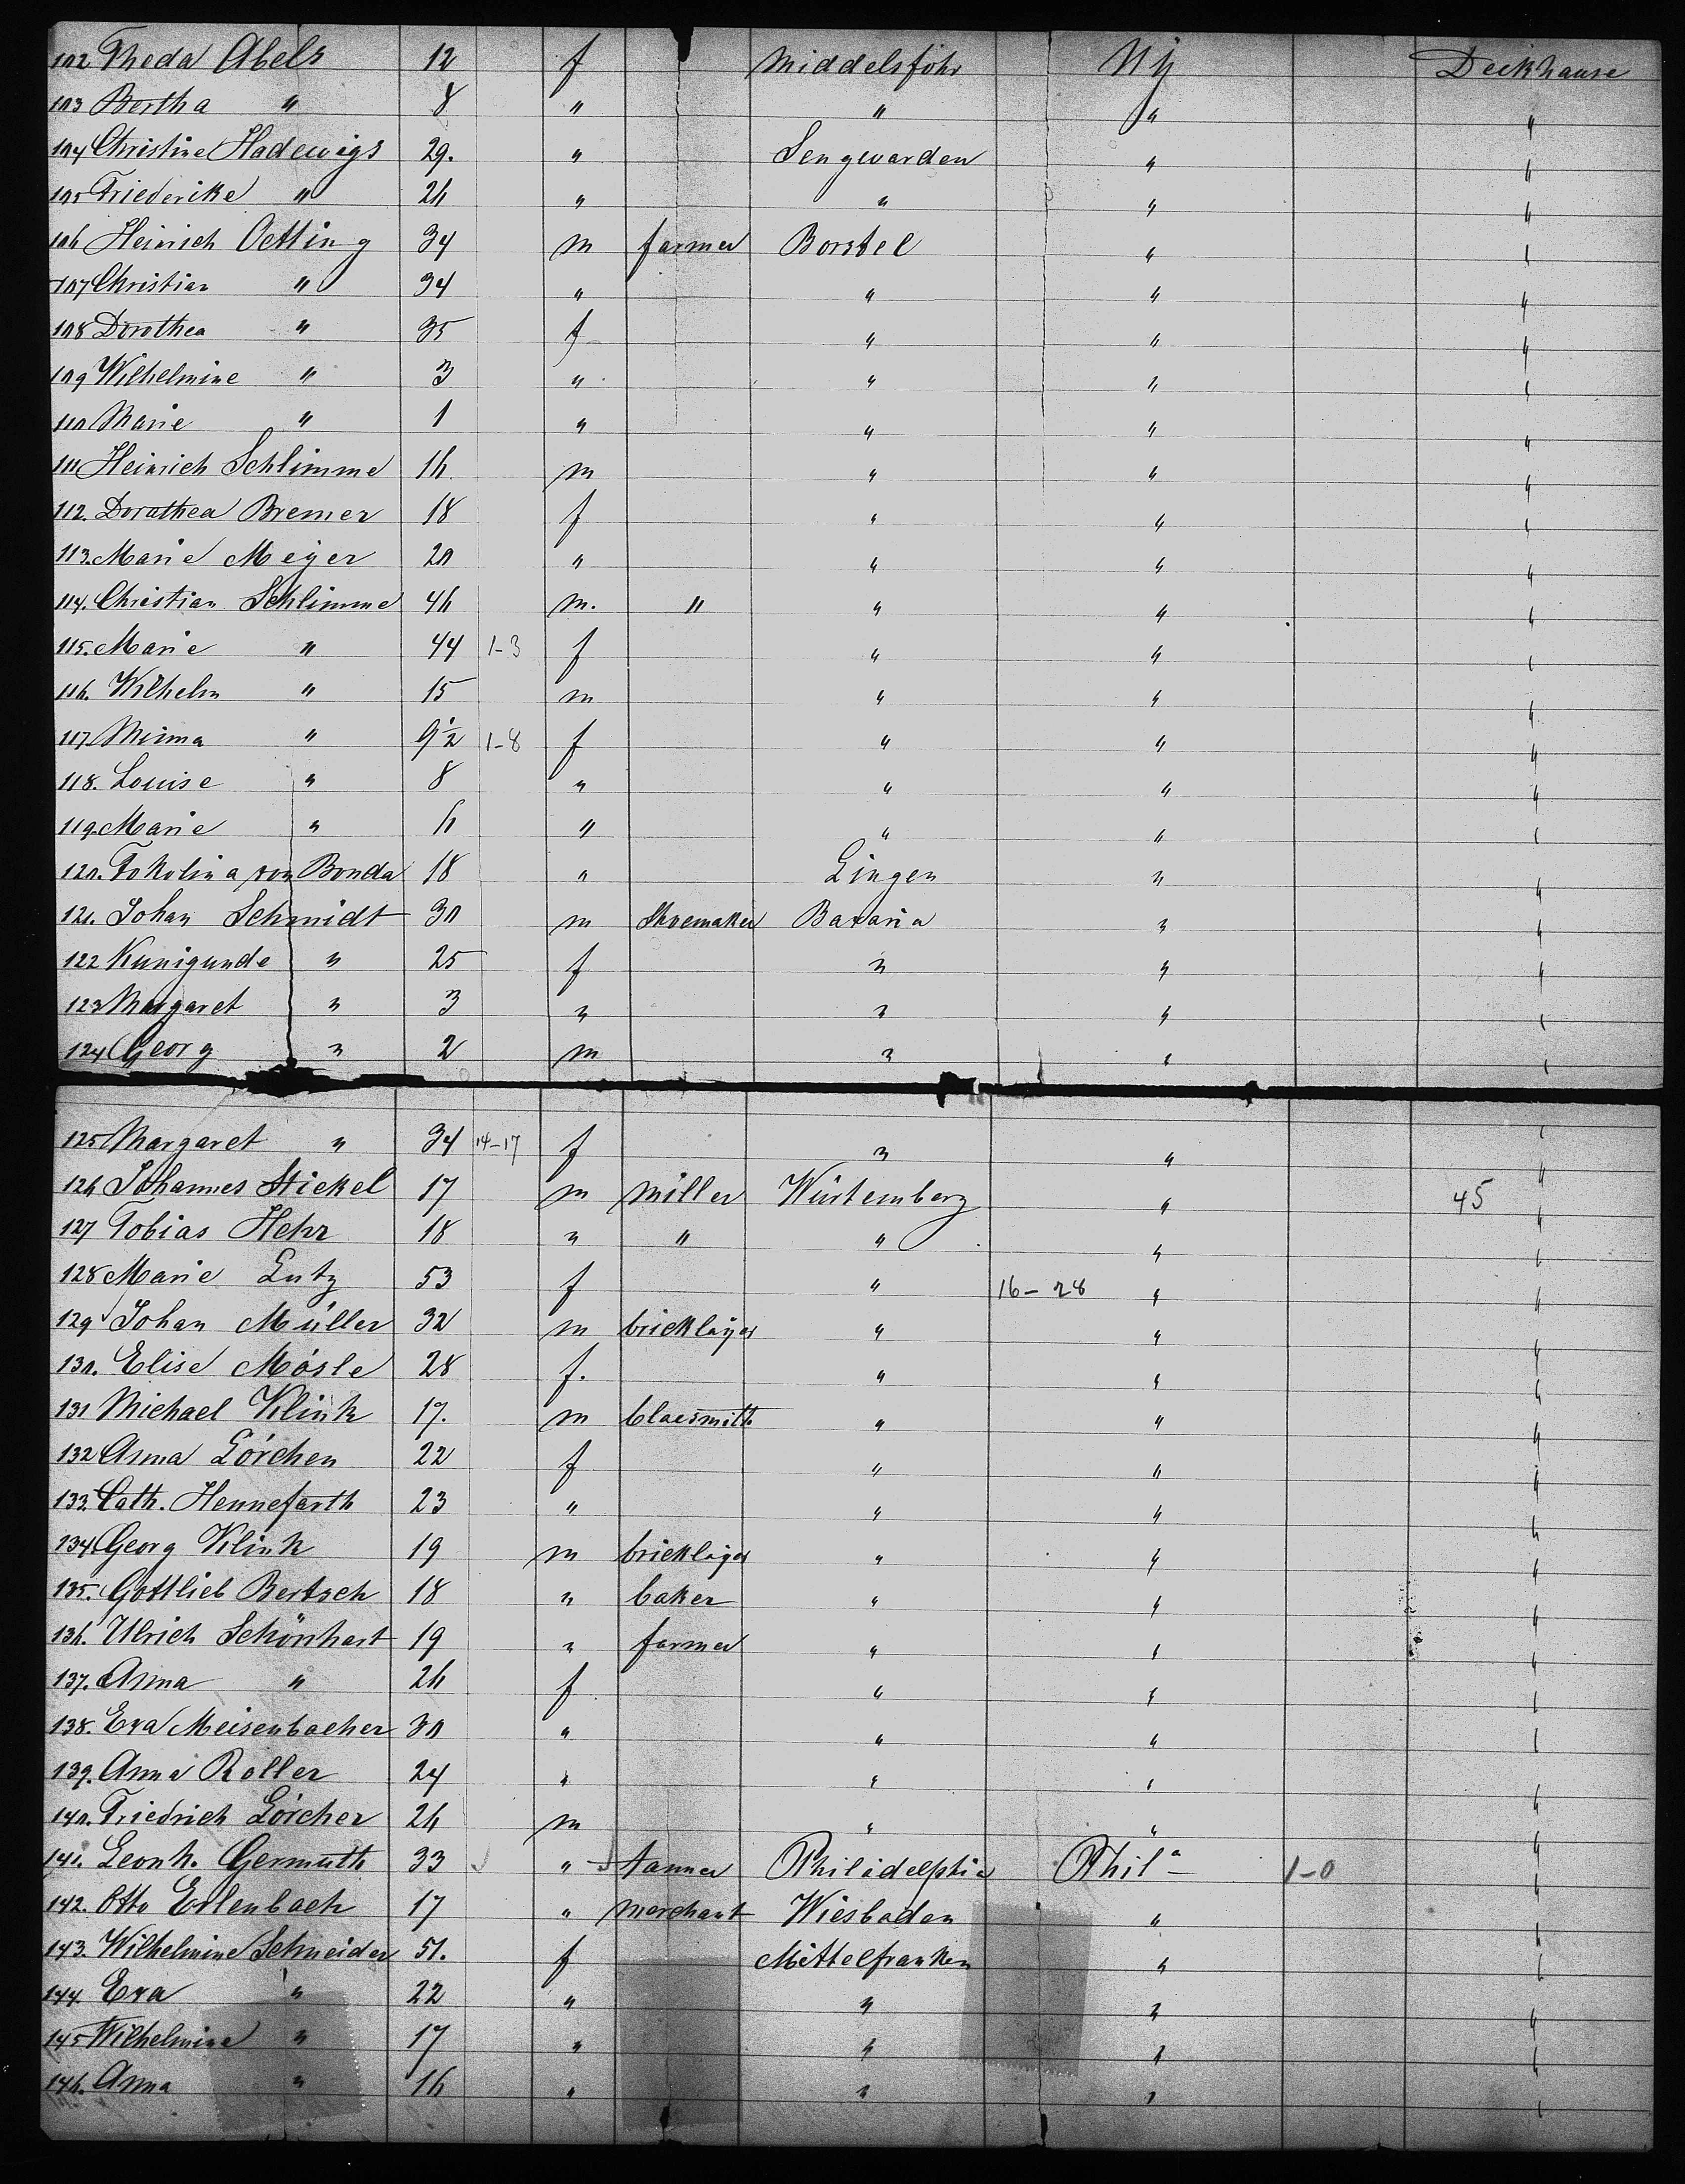 102 Theda Abels 12 f Middelsföhr NY Deckhause
103 Bertha " 8 " " " "
104 Christine Hadewigs 29. " Sengwarden " "
105 Friederike " 26 " " " "
106 Heinrich Oetting 34 m farmer Borstel " "
107 Christian " 34 " " " "
108 Dorothea " 35 f " " "
109 Wilhelmine " 3 " " " "
110 Marie " 1 " " " "
111 Heinrich Schlimme 16 m " " "
112. Dorothea Bremer 18 f " " "
113. Marie Meyer 20 " " " "
114. Christian Schlimme 46 m. " " " "
115. Marie " 44 1-3 f " " "
116. Wilhelm " 15 m " " "
117. Minna " 9 1/2 1-8 f " " "
118. Louise " 8 " " " "
119. Marie " 6 " " " "
120. Fokolina von Bonda 18 " Lingen " "
121. Johan Schmidt 30 m Shoemaker Bavaria " "
122 Kunigunde " 25 f " " "
123 Margaret " 3 " " " "
124 Georg " 2 m " " "
125 Margaret " 34 14-17 f " " "
126 Johannes Stickel 17 m Miller Würtemberg " 45 "
127 Tobias Hehr 18 " " " " "
128 Marie Lutz 53 f " 16-28 " "
129 Johan Müller 32 m bricklayer " " "
130. Elise Mösle 28 f. " " "
131 Michael Klink 17. m blacsmith " " "
132 Anna Lörchen 22 f " " "
133. Cath. Hennefarth 23 " " " "
134 Georg Klink 19 m bricklayer " " "
135. Gottlieb Bertsch 18 " baker " " "
136. Ulrich Schönhart 19 " farmer " " "
137. Anna " 26 f " " "
138. Eva Meisenbacher 30 " " " "
139. Anna Roller 24 " " " "
140. Friedrich Lörcher 26 m " " "
141. Leonh. Germuth 33 " tanner Philadelphia Phila 1-0 "
142. Otto Erlenbach 17 " merchant Wiesbaden " "
143. Wilhelmine Schneider 51. f Mittelfranken " "
144. Eva " 22 " " " "
145 Wilhelmine " 17 " " " "
146. Anna " 16 " " " "